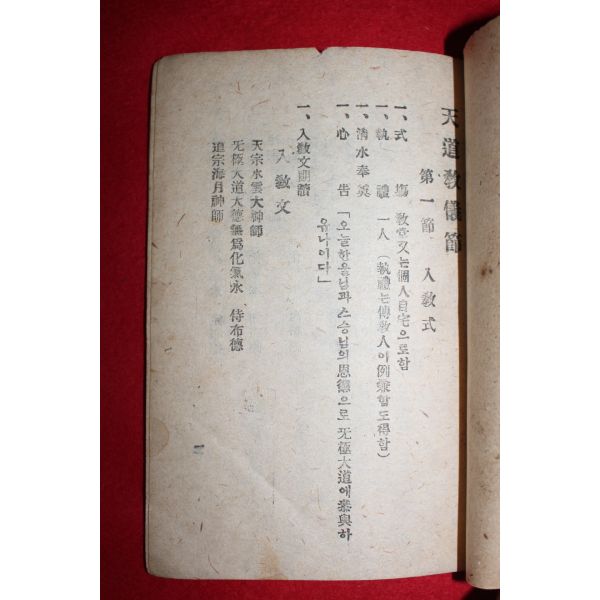 天道敎儀節
第一節 入敎式
一、式場 敎堂又는個人自宅으로함
一、執禮 一人 (執禮는傳敎人이例兼할도得함)
一、清水奉奠
一、心告 「오늘한울님과스승님의恩德으로无極大道에叅與하
읍나이다」
一、入敎文朗讀
入敎文
天宗水雲大神師
无極大道大德無爲化氣永 侍布德
道宗海月神師
一